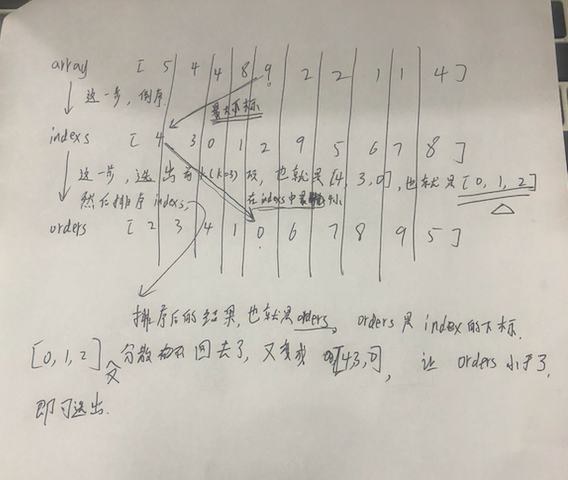 array [ 5 4 4 8 9 2 2 1 1 4 ]
↓ 这一步,倒序. 最大下标
indexs [ 4 3 0 1 2 9 5 6 7 8 ]
这一步,选出前k(k=3)项,也就是[4,3,0],也就是[0,1,2]
然后排序indexs, 在indexs中最小
orders [ 2 3 4 1 0 6 7 8 9 5 ]
排序后的结果,也就是orders。orders是index的下标.
[0,1,2]又分散 回去了,又变成 [4,3,0],让orders小于3,
即可选出.